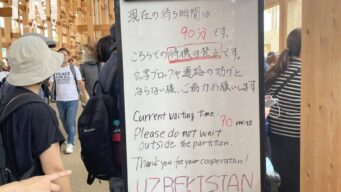 現在の待ち時間は
90分です。
こちらでの待機は禁止です。
点字ブロックや通路の妨げと
ならない様、ご協力お願いします
Current waiting time: 90 mins
Please do not wait
outside the partition.
Thank you for your cooperation!
UZBEKISTAN